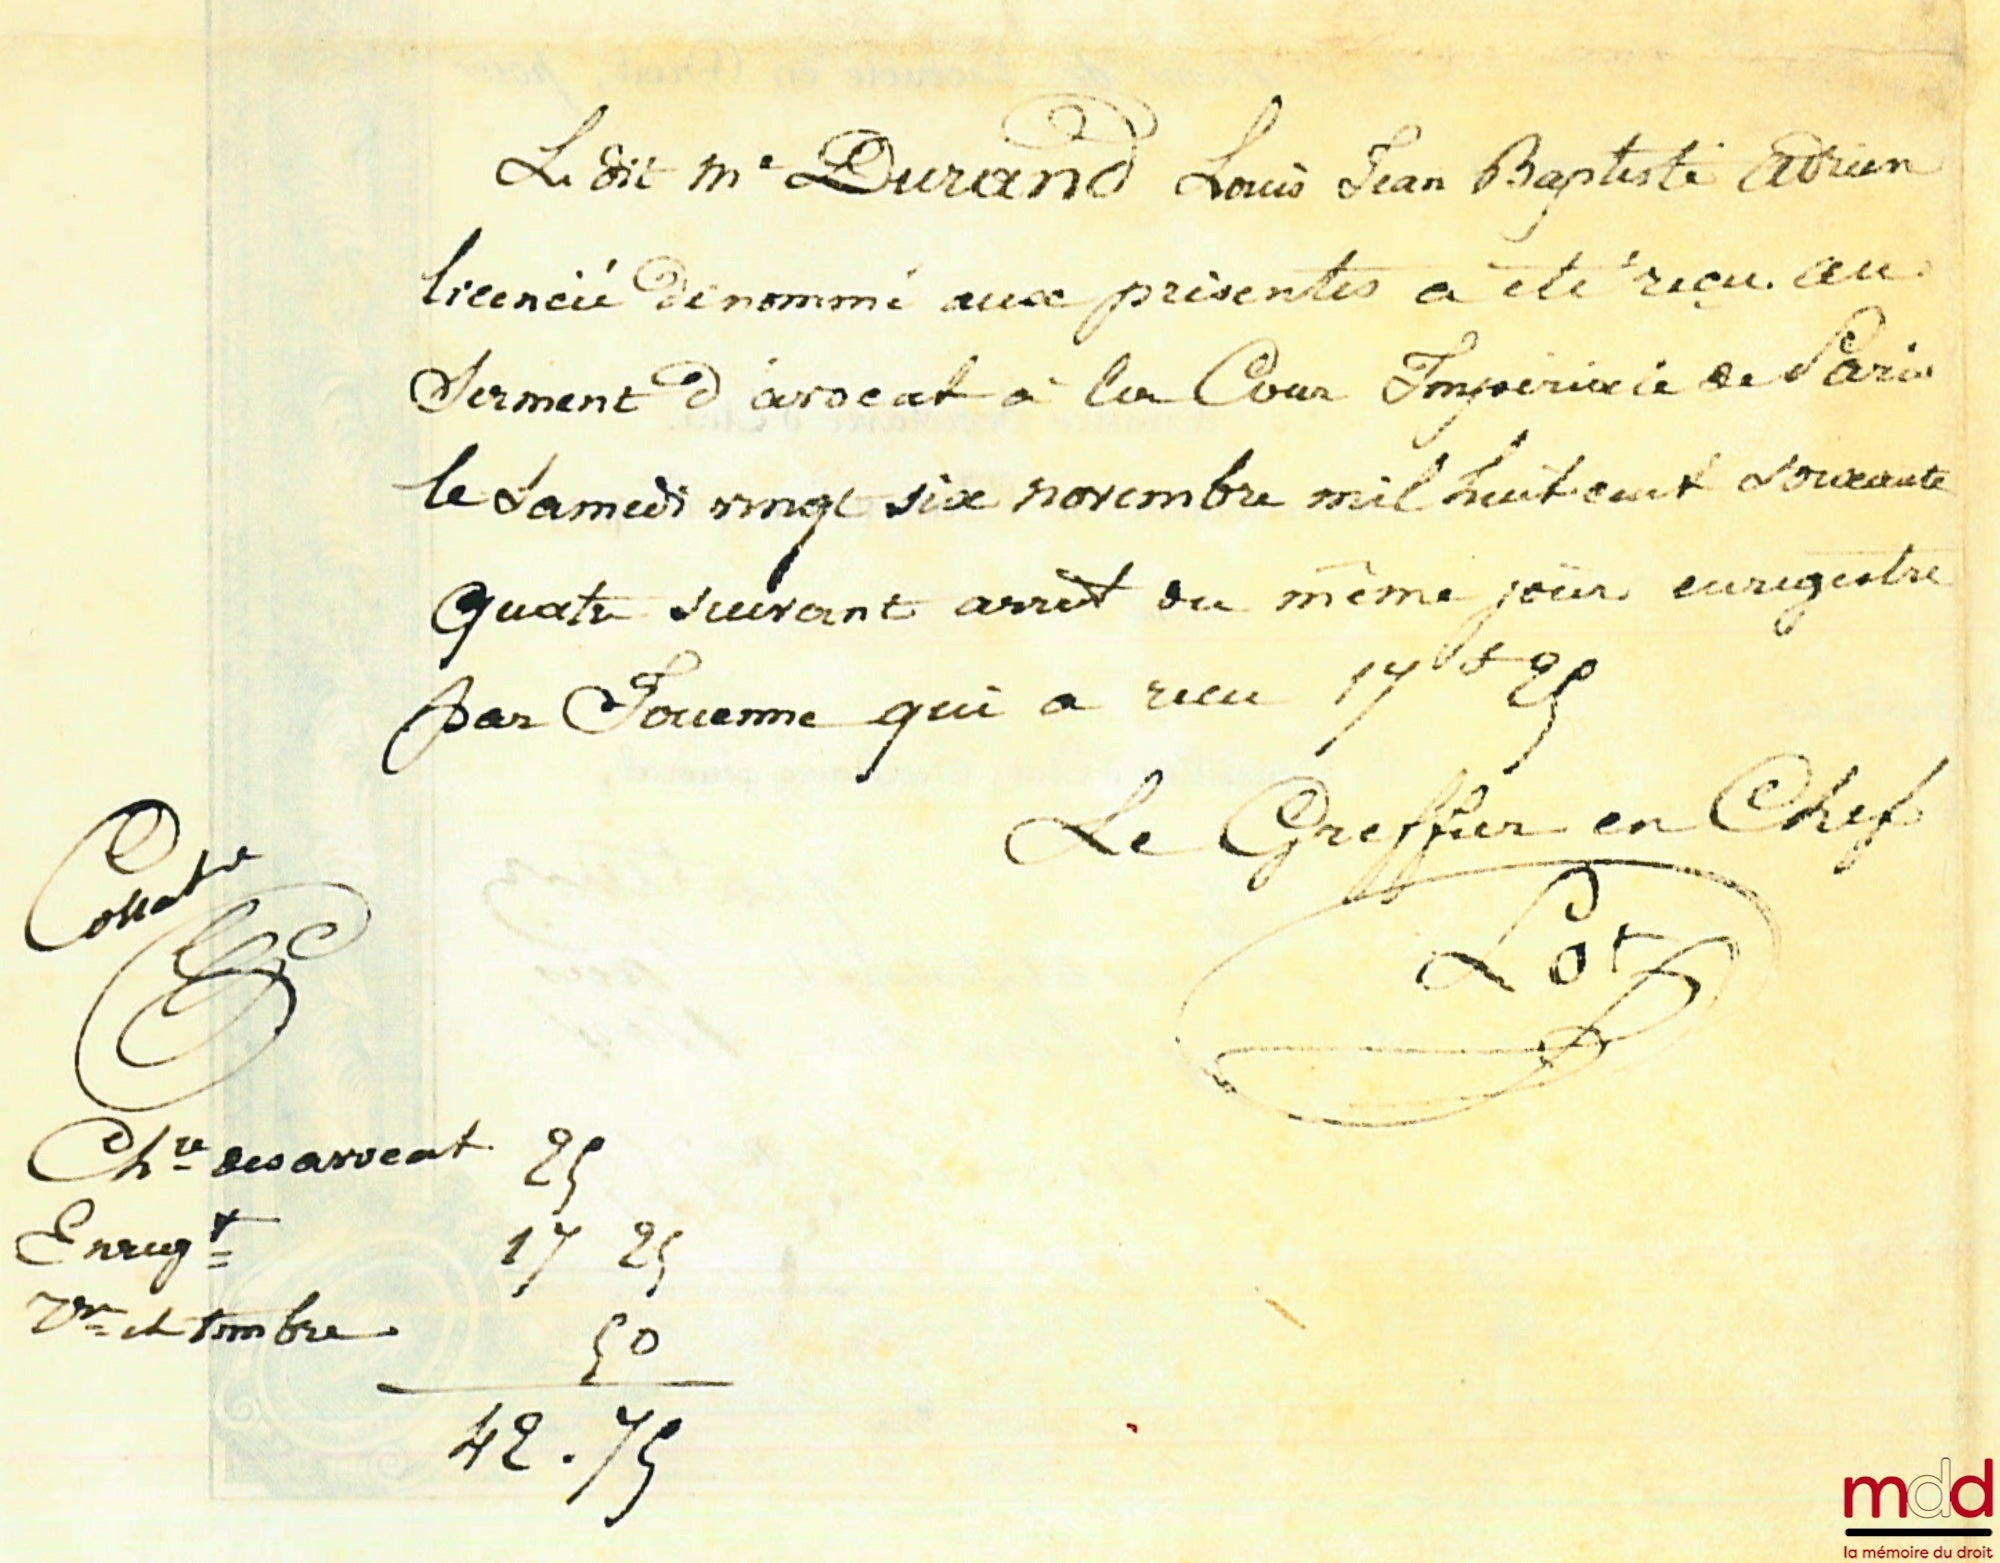 Le dit Me Durand Louis Jean Baptiste Adrien
licencié dénommé aux présentes a été reçu au
Serment d'avocat à la Cour Impériale de Paris
le Samedi vingt six novembre mil huit cent soixante
quatre suivant arrêt du même jour enregistré
par Jouenne qui a reçu 17 f 25
Le Greffier en Chef
Lot
Collatné
Chre des avocat 25
Enregt 17 25
Von et timbre 50
42.75
mdd
la mémoire du droit